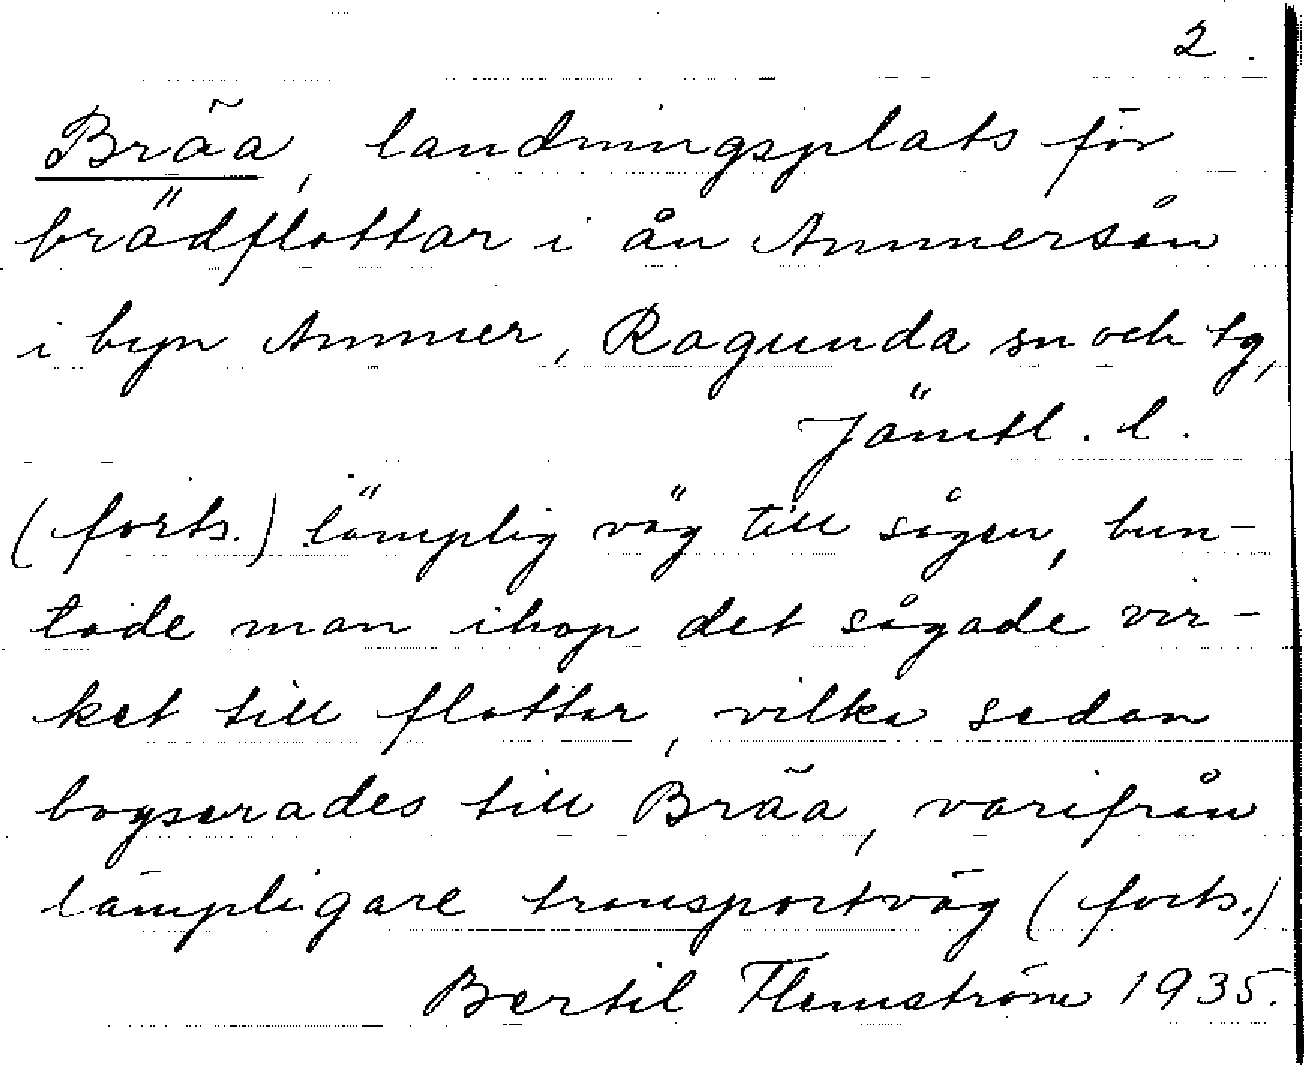 2.
Bräa, landningsplats för
brädflottar i ån Ammerån
i byn Ammer, Ragunda sn och tg,
Jämtl. l.
(forts.) lämplig väg till sågen, bun-
tade man ihop det sågade vir-
ket till flottar, vilka sedan
bogserades till Bräa, varifrån
lämpligare transportväg (forts.)
Bertil Flemström 1935.